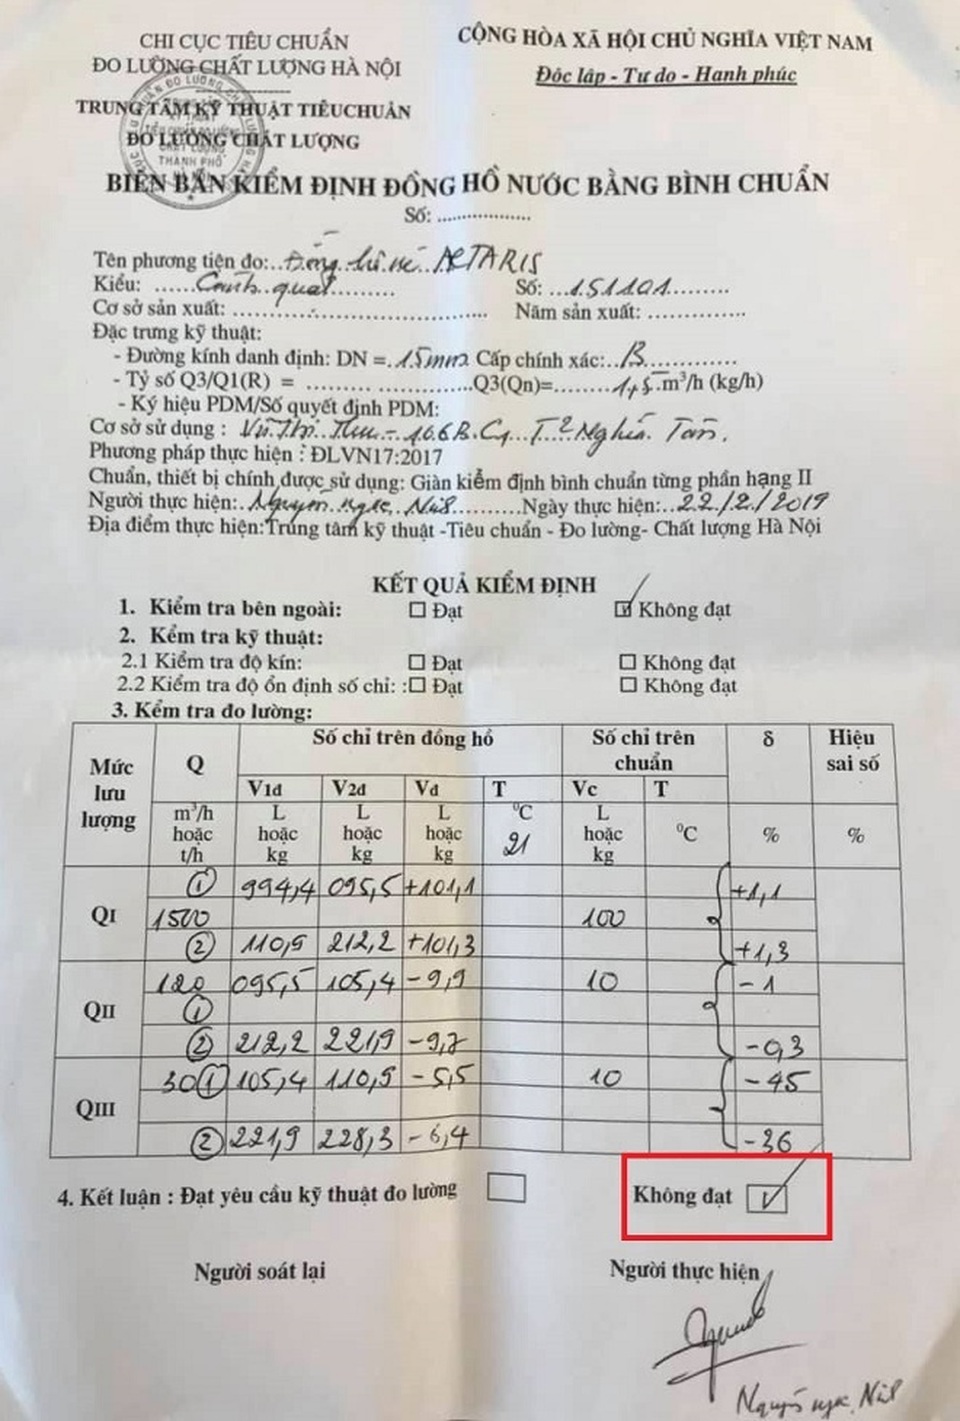 CHI CỤC TIÊU CHUẨN
ĐO LƯỜNG CHẤT LƯỢNG HÀ NỘI
TRUNG TÂM KỸ THUẬT TIÊUCHUẨN
ĐO LƯỜNG CHẤT LƯỢNG
CỘNG HÒA XÃ HỘI CHỦ NGHĨA VIỆT NAM
Độc lập - Tự do - Hạnh phúc
BIÊN BẢN KIỂM ĐỊNH ĐỒNG HỒ NƯỚC BẰNG BÌNH CHUẨN
Số: ..................
Tên phương tiện đo: Đồng hồ ACTARIS
Kiểu: ......Cánh quạt......... Số: ...151101.........
Cơ sở sản xuất: ................................. Năm sản xuất: ...............
Đặc trưng kỹ thuật:
- Đường kính danh định: DN = 15mm Cấp chính xác: B............
- Tỷ số Q3/Q1(R) = ........ ...............Q3(Qn)=........1,5..m³/h (kg/h)
- Ký hiệu PDM/Số quyết định PDM:
Cơ sở sử dụng : Vũ Thị Thu - 106B. C1 T² Nghĩa Tân.
Phương pháp thực hiện : ĐLVN17:2017
Chuẩn, thiết bị chính được sử dụng: Giàn kiểm định bình chuẩn từng phần hạng II
Người thực hiện: Nguyễn Ngọc ..........Ngày thực hiện: 22/2/2019
Địa điểm thực hiện:Trung tâm kỹ thuật -Tiêu chuẩn - Đo lường- Chất lượng Hà Nội
KẾT QUẢ KIỂM ĐỊNH
1. Kiểm tra bên ngoài: ☐ Đạt ☑ Không đạt
2. Kểm tra kỹ thuật:
2.1 Kiểm tra độ kín: ☐ Đạt ☐ Không đạt
2.2 Kiểm tra độ ổn định số chỉ: :☐ Đạt ☐ Không đạt
3. Kểm tra đo lường:
Mức lưu lượng Q Số chỉ trên đồng hồ Số chỉ trên chuẩn δ Hiệu sai số
V1đ V2đ Vđ T Vc T
m³/h hoặc t/h L hoặc kg L hoặc kg L hoặc kg ⁰C 21 L hoặc kg ⁰C % %
① 994,4 095,5 +101,1 +1,1
QI 1500 100
② 110,9 212,2 +101,3 +1,3
120 095,5 105,4 -9,9 10 -1
QII ①
② 212,2 221,9 -9,7 -0,3
30 ① 105,4 110,9 -5,5 10 -45
QIII
② 221,9 228,3 -6,4 -36
4. Kết luận : Đạt yêu cầu kỹ thuật đo lường ☐ Không đạt ☑
Người soát lại Người thực hiện
Nguyễn Ngọc